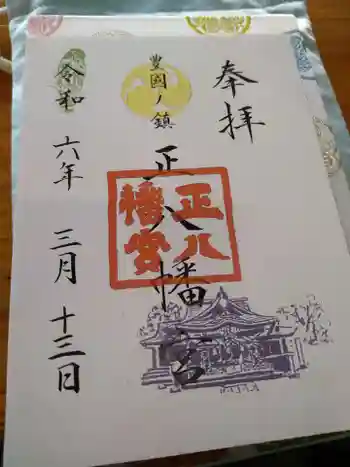 奉拝
豊國ノ鎮
正八幡宮
正八
幡宮
令和 六年 三月 十三日